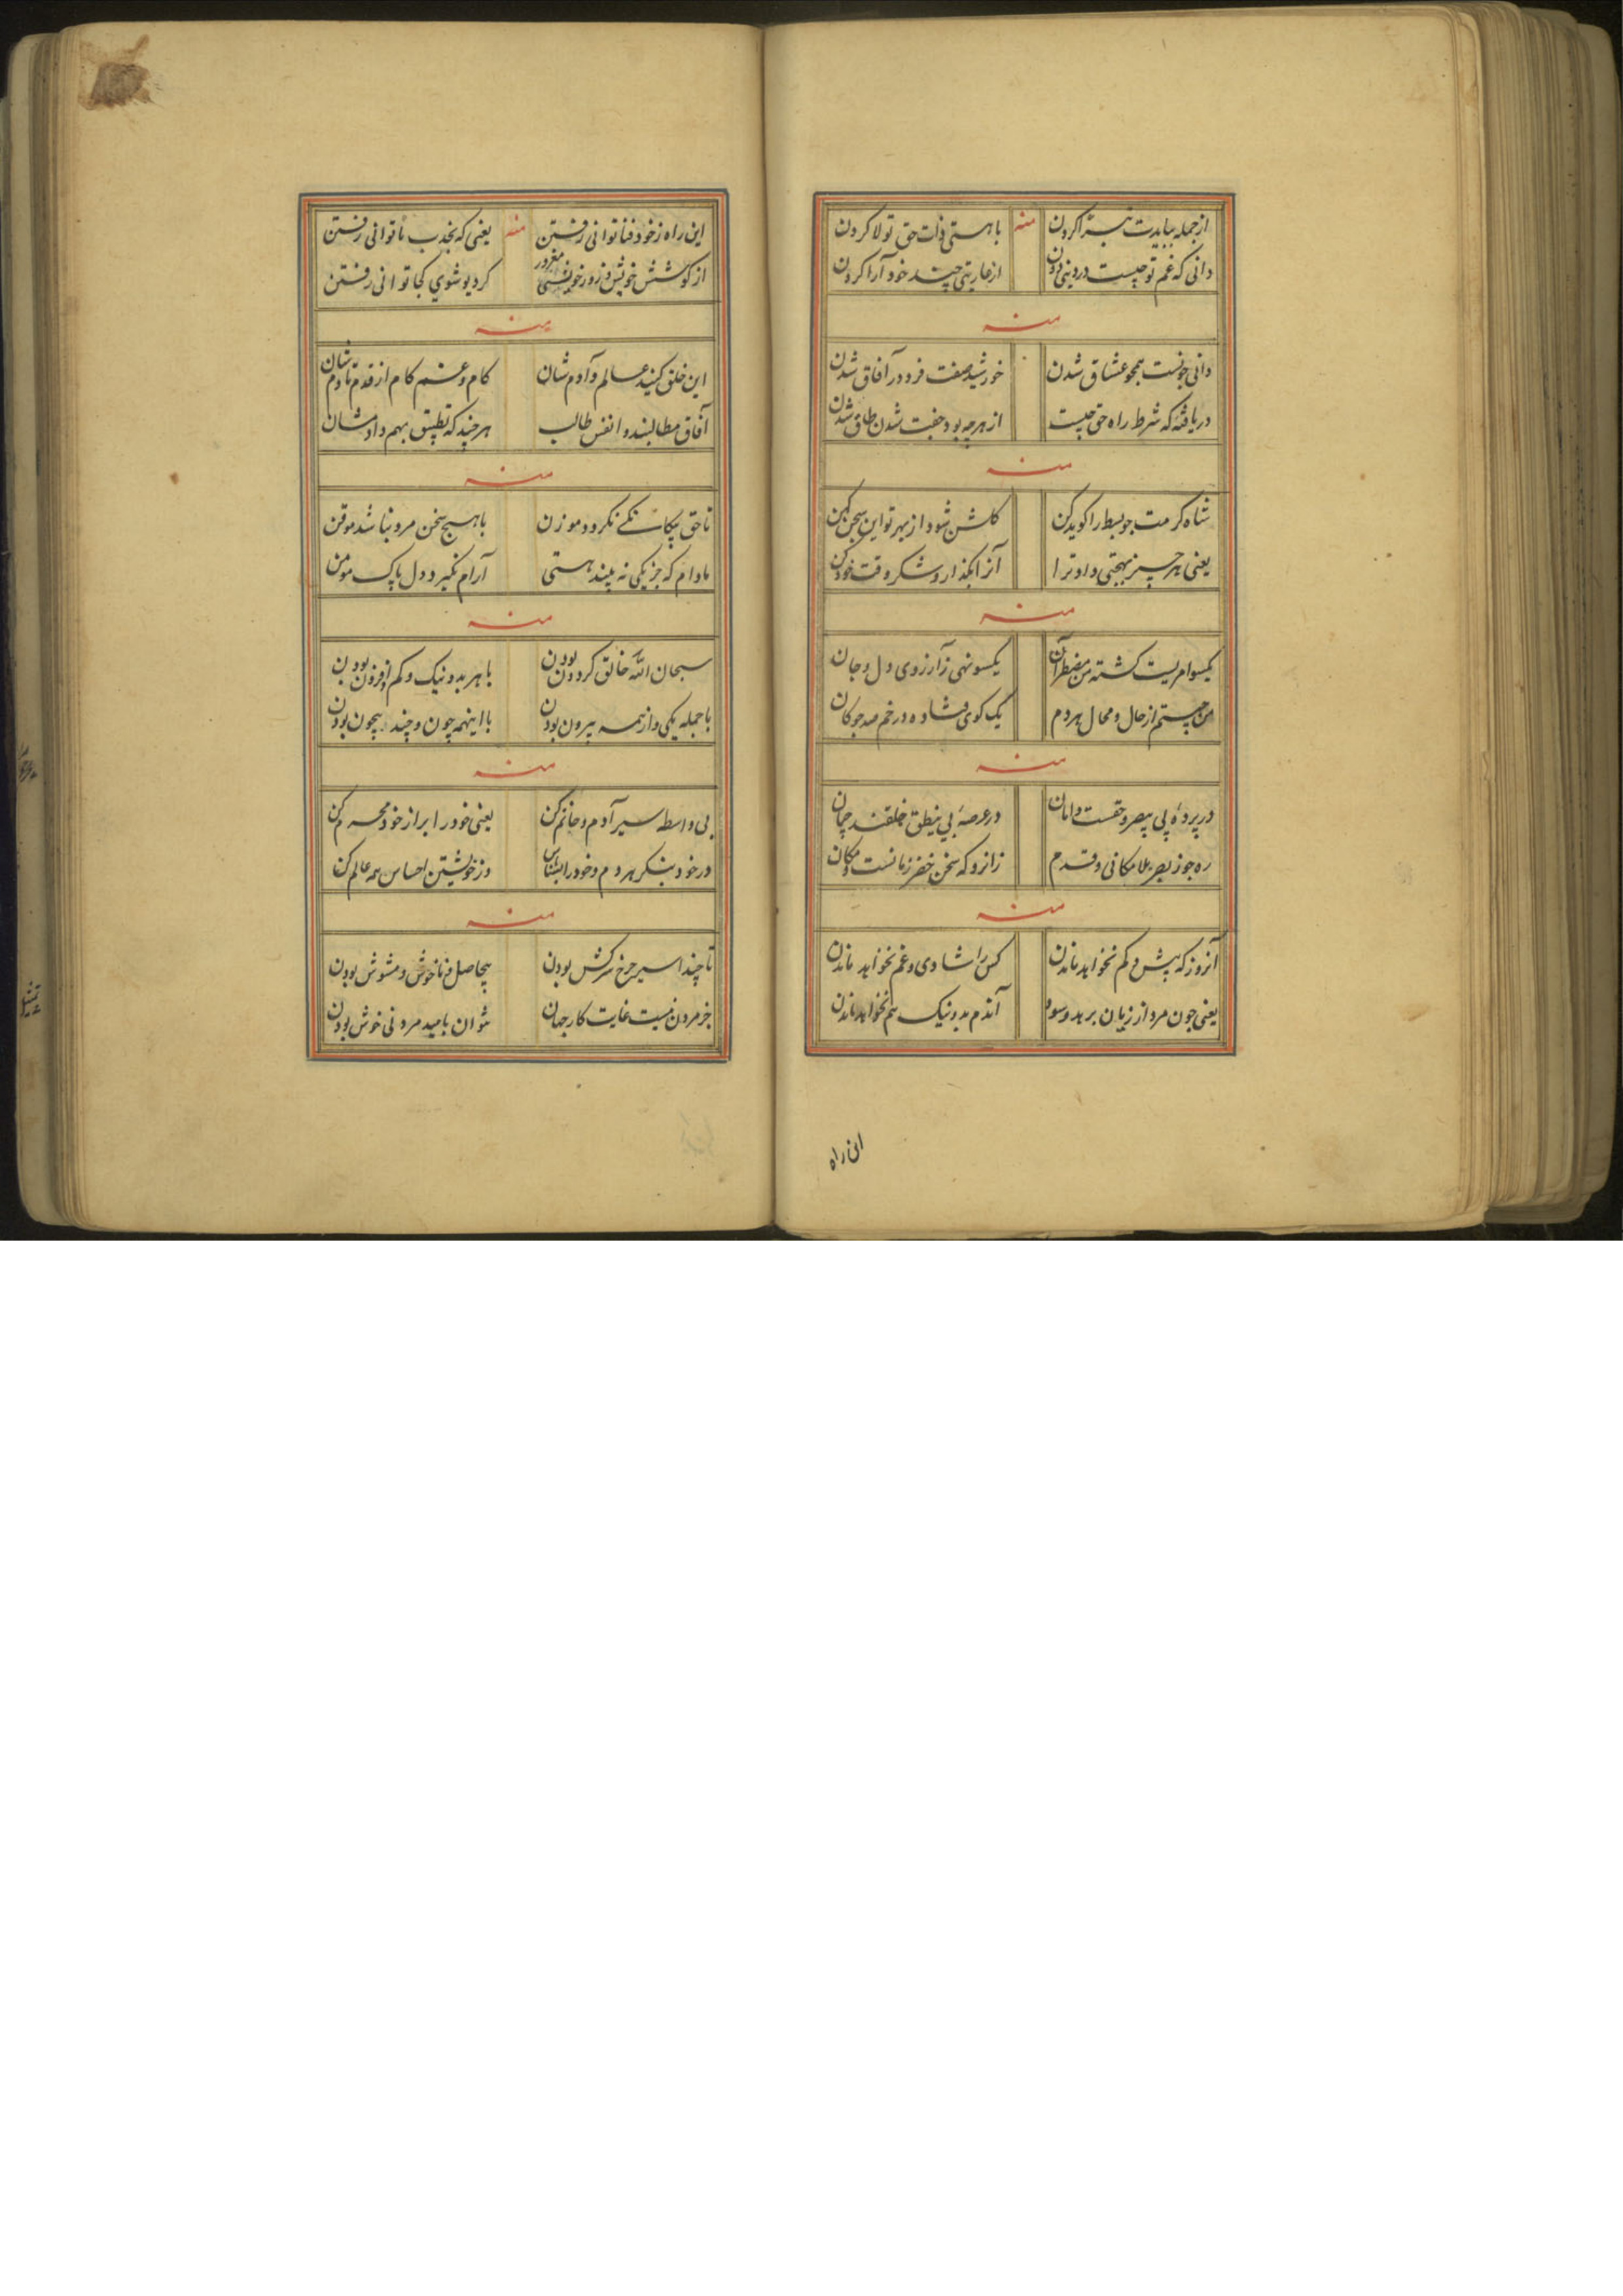 از جمله ببایدت تبرّا کردن
منه
با هستی ذات حق تولا کردن
دانی که غم تو چیست در دینی دون
از عاریتی چند خود آرا کردن
منه
دانی چونست محو عشاق شدن
خورشید صفت فرد در آفاق شدن
دریافتهٔ که شرط راه حق چیست
از هرچه بود جفت شدن طاق شدن
منه
شاه کرمت چو بسط را کوید کن
کلشن شود از بهر تو این سجن کهن
یعنی هر چیز بهجتی داد ترا
آنرا بگذار و شکر وقت خود کن
منه
یکسو امریست کشته من مضطر آن
یکسو نهی ز آرزوی دل و جان
من چیستم از حال و محال هر دم
یک کوی فتاده در خم صد چوکان
منه
در پردهٔ بی یبصر و حقست و امان
در عرصهٔ بی ینطق خلقند چمان
ره جوز یبصر بلا مکانی و قدم
زانرو که سخن خضر زمانست و مکان
منه
آنروز که بیش و کم نخواهد ماندن
کس را شادی و غم نخواهد ماندن
یعنی چون مرد از زیان برهد و سود
آندم بد و نیک هم نخواهد ماندن
این راه
این راه ز خود فنا توانی رفتن
منه
یعنی که بجذب ما توانی رفتن
از کوشش خویش و زور خویشی مغرور
کر دیو شوی کجا توانی رفتن
منه
این خلق کیند عالم و آدم شان
کام و غم کام از قدم تا دم شان
آفاق مطالبند و انفس طالب
هر چند که تطبیق بهم دادمشان
منه
تا حق یکانکی نکردد موزن
با هیچ سخن مرد نباشد موقن
مادام که جز یکی نه بیند هستی
آرام نکیرد دل پاک مومن
منه
سبحان الله خالق کردون بودن
با هر بد و نیک و کم و افزون بودن
با جمله یکی و از همه بیرون بودن
با اینهمه چون و چند بیچون بودن
منه
بی واسطه سیر آدم و خاتم کن
یعنی خود را بر از خود محرم کن
در خود بنکر هر دم و خود را بشناس
وز خویشتن احساس همه عالم کن
منه
تا چند اسیر چرخ سرکش بودن
بیحاصل و ناخوش و مشوش بودن
جز مردن نیست غایت کار جهان
نتوان بامید مردنی خوش بودن